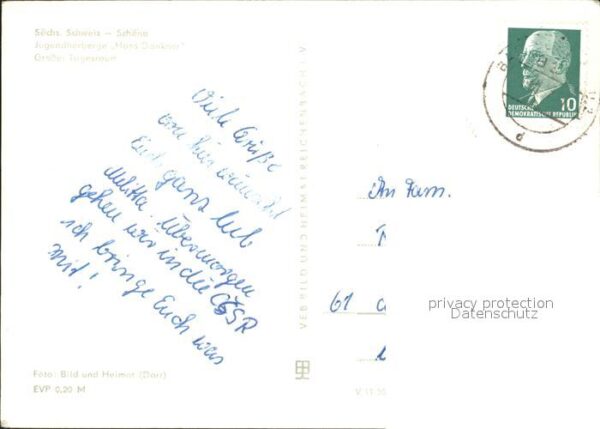 Sächs. Schweiz — Schöna
Jugendherberge „Hans Dankner"
Großer Tagesraum
Viele Grüße
von hier wünscht
Euch ganz lieb
Melitta. Übermorgen
gehen wir in die ČSSR
ich bringe Euch was
mit!
Foto: Bild und Heimat (Darr)
EVP 0,20 M
VEB BILD UND HEIMAT REICHENBACH I. V.
V 11 50
DEUTSCHE
DEMOKRATISCHE REPUBLIK
10
An Fam.
61
privacy protection
Datenschutz